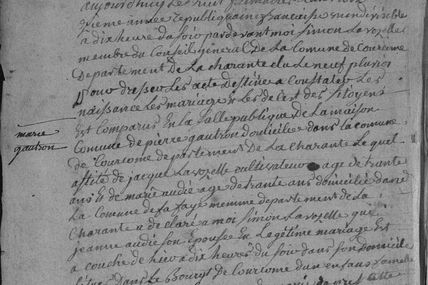 aujourdhuy Le huit frimaire
sixieme année Republiquaine francaise
a dix heure du soir pardevant moi Simon Lavozelle
membre du Conseil general De La Comune de Courcome
Departement De La charante elu Le neuf pluvios
pour dresser Les acte destine a Constater Les
naissance Les mariage & Les deces des sitoyens
Est comparus En La salle publique de La maison
Comune de pierre gautron domicilie dans la comune
de Courcome departemens De La charante Lequel
assite de jacque Lavozelle cultivateur age de trante
ans & de marie audié age de trante ans domicilié dans
La Comune de La faye memme departement de La
Charante a declaré a moi Simon Lavozelle que
jeanne audié son Epouse En Legétime mariage Est
a couche de hier a dix heures du soir dans son domicile
dans Le Bourg de Courcome d'un enfans femelle
marie
gautron